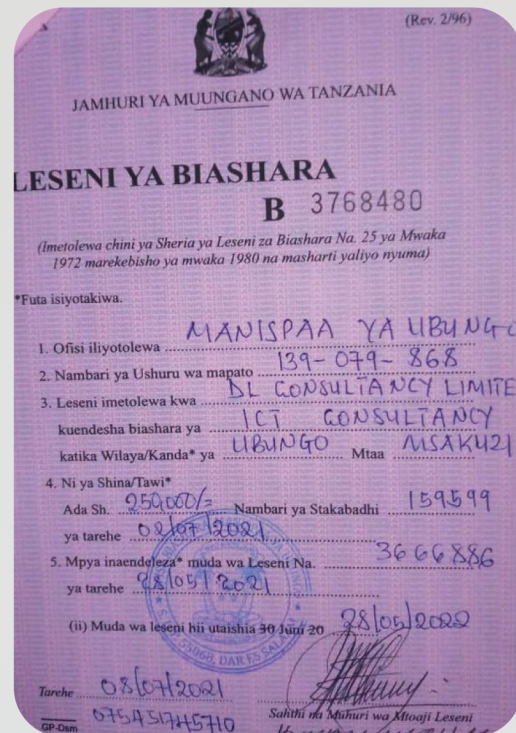 (Rev. 2/96)
JAMHURI YA MUUNGANO WA TANZANIA
LESENI YA BIASHARA
B 3768480
(Imetolewa chini ya Sheria ya Leseni za Biashara Na. 25 ya Mwaka
1972 marekebisho ya mwaka 1980 na masharti yaliyo nyuma)
*Futa isiyotakiwa.
1. Ofisi iliyotolewa MANISPAA YA UBUNGO
2. Nambari ya Ushuru wa mapato 139-079-868
3. Leseni imetolewa kwa DL CONSULTANCY LIMITE
kuendesha biashara ya ICT CONSULTANCY
katika Wilaya/Kanda* ya UBUNGO Mtaa MSAKUZI
4. Ni ya Shina/Tawi*
Ada Sh. 250,000/= Nambari ya Stakabadhi 159599
ya tarehe 02/07/2021
5. Mpya inaendeleza* muda wa Leseni Na. 3666886
ya tarehe 28/05/2021
(ii) Muda wa leseni hii utaishia 30 Juni 20 28/05/2022
DAR ES SALAAM
Tarehe 08/07/2021
Sahihi na Muhuri wa Mtoaji Leseni
GP-Dsm